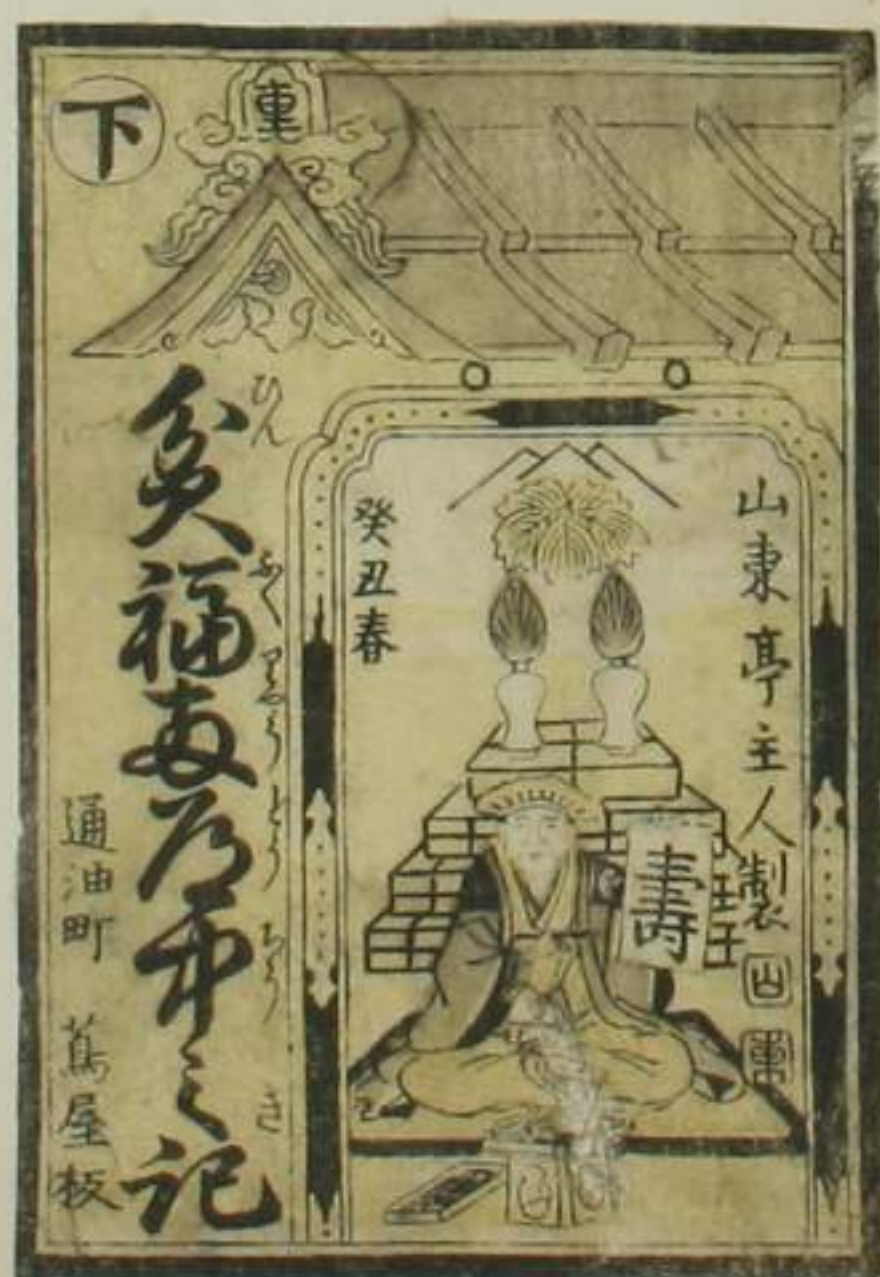 下
重
山東亭主人製
山
東
癸丑春
壽
貧福両道中之記
ひんふくりやうどうちうき
通油町 蔦屋板